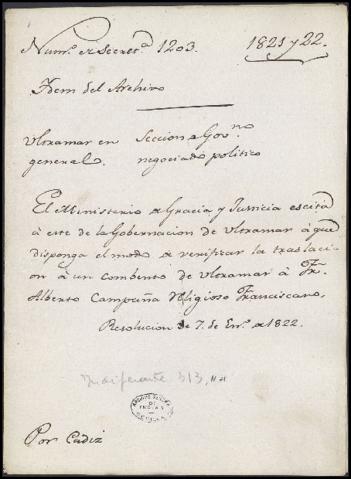 Num.º de Secret.ª 1203. 1821 y 22.
Idem del Archivo
Ultramar en Seccion de Gov.no
general. negociado politico
El Ministerio de Gracia y Justicia escita
à este de la Gobernacion de Ultramar à que
disponga el modo de verificar la traslaci-
on à un combento de Ultramar à Fr.
Alberto Campaña Religioso Franciscano,
Resolucion de 7. de En.º de 1822.
Indiferente 313,
ARCHIVO GENERAL
DE
INDIAS
SEVILLA
Por Cadiz